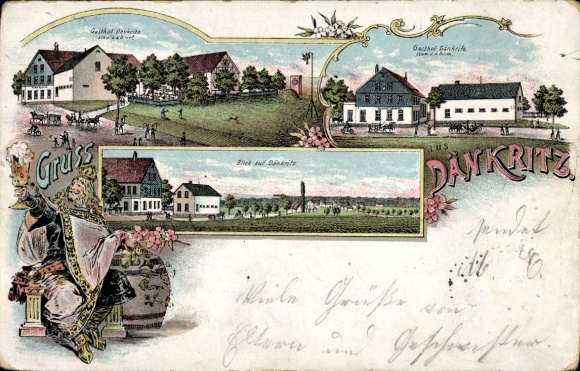 Gasthof Dänkritz
Gasthof Dänkritz
Gruss
aus
DÄNKRITZ.
Blick auf Dänkritz
sendet
Viele Grüße von
Eltern und Geschwister.